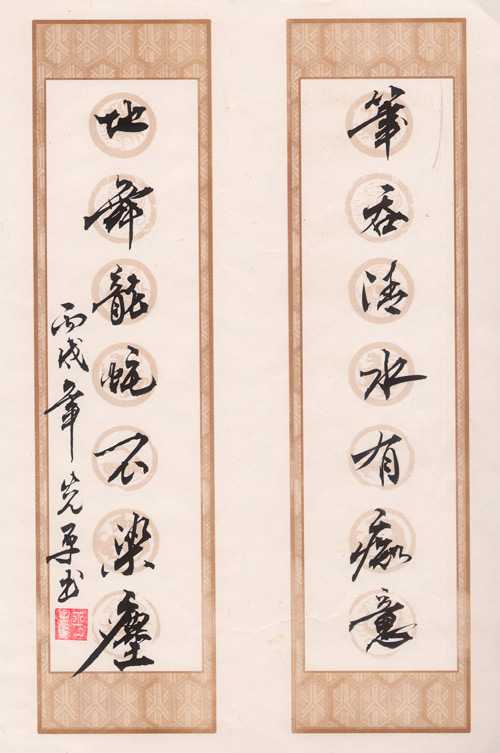 筆吞清水有痴意
地舞龍蛇不染塵
丙戌年先厚书